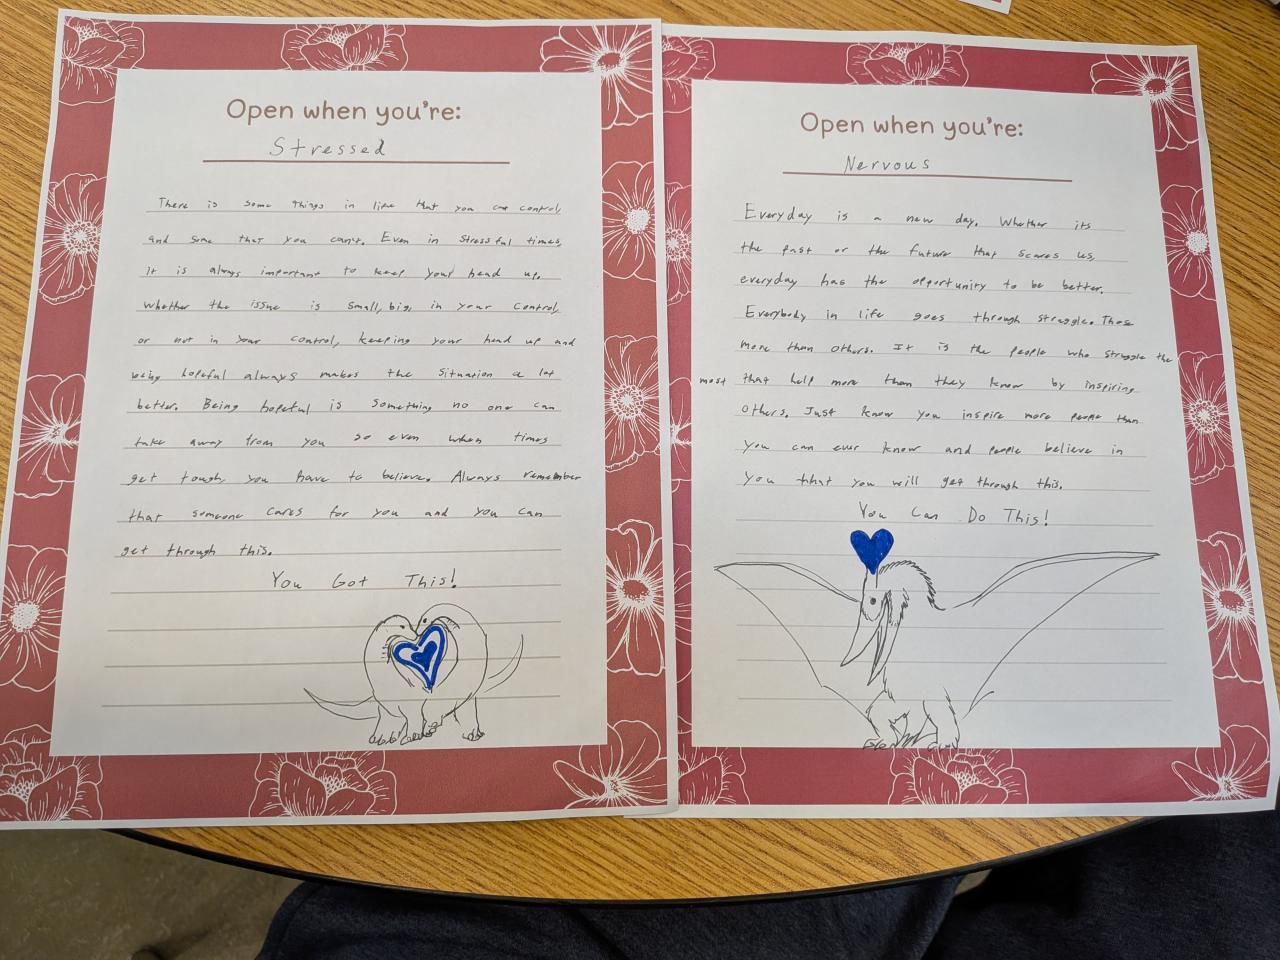 Open when you're:
Stressed
There is some things in life that you can control,
and some that you can't. Even in stressful times,
it is always important to keep your head up.
Whether the issue is small, big, in your control,
or not in your control, keeping your head up and
being hopeful always makes the situation a lot
better. Being hopeful is something no one can
take away from you so even when times
get tough, you have to believe. Always remember
that someone cares for you and you can
get through this.
You Got This!
Open when you're:
Nervous
Everyday is a new day. Whether its
the past or the future that scares us,
everyday has the opportunity to be better.
Everybody in life goes through struggle. Those
more than others. It is the people who struggle the
most that help more than they know by inspiring
others. Just know you inspire more people than
you can ever know and people believe in
you that you will get through this.
You Can Do This!